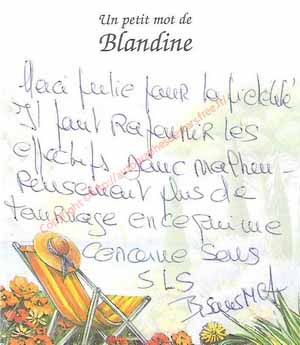 Un petit mot de
Blandine
Merci Julie pour ta fidélité
Il faut Rajeunir les
effectifs donc malheu-
Reusement plus de
tournage en ce qui me
concerne sans
SLS
Bisous